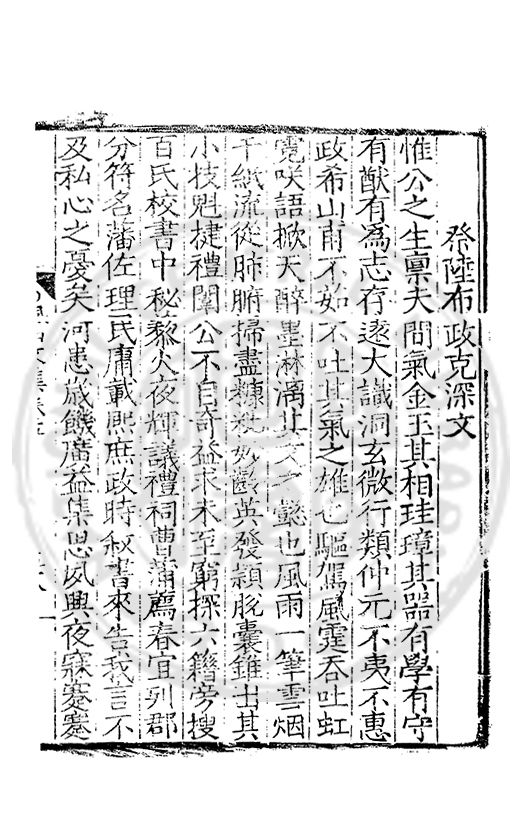 祭陸布政克深文
惟公之生稟夫間氣金玉其相珪璋其器有學有守
有猷有為志存遠大識洞玄微行類仲元不夷不惠
政希山甫不茹不吐其氣之雄也驅駕風霆吞吐虹
霓咲語掀天醉墨淋漓其文之懿也風雨一筆雲烟
千紙流從肺腑掃盡糠秕妙齡英發穎脫囊錐出其
小技魁捷禮闈公不自奇益求未至窮探六籍旁搜
百氏校書中秘藜火夜輝議禮祠曹蒲薦春宜列郡
分符名藩佐理民庸載熙庶政時敘書來告我言不
及私心之憂矣河患歲饑廣益集思夙興夜寐蹇蹇